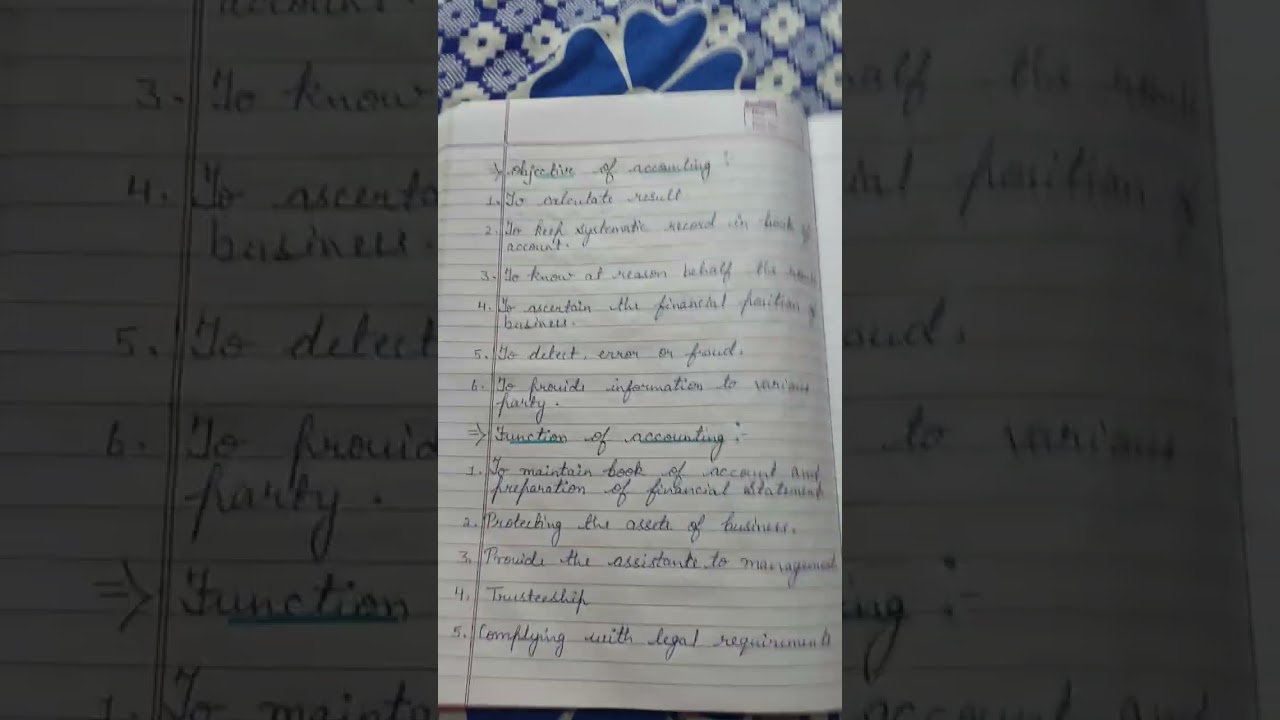 ⇒ Objective of accounting :
1. To calculate result
2. To keep systematic record in book of
account.
3. To know at reason behalf the result
4. To ascertain the financial position of
business.
5. To detect, error or fraud.
6. To provide information to various
party.
⇒ Function of accounting :-
1. To maintain book of account and
preparation of financial statement
2. Protecting the assets of business.
3. Provide the assistante to management
4. Trusteeship
5. Complying with legal requirements